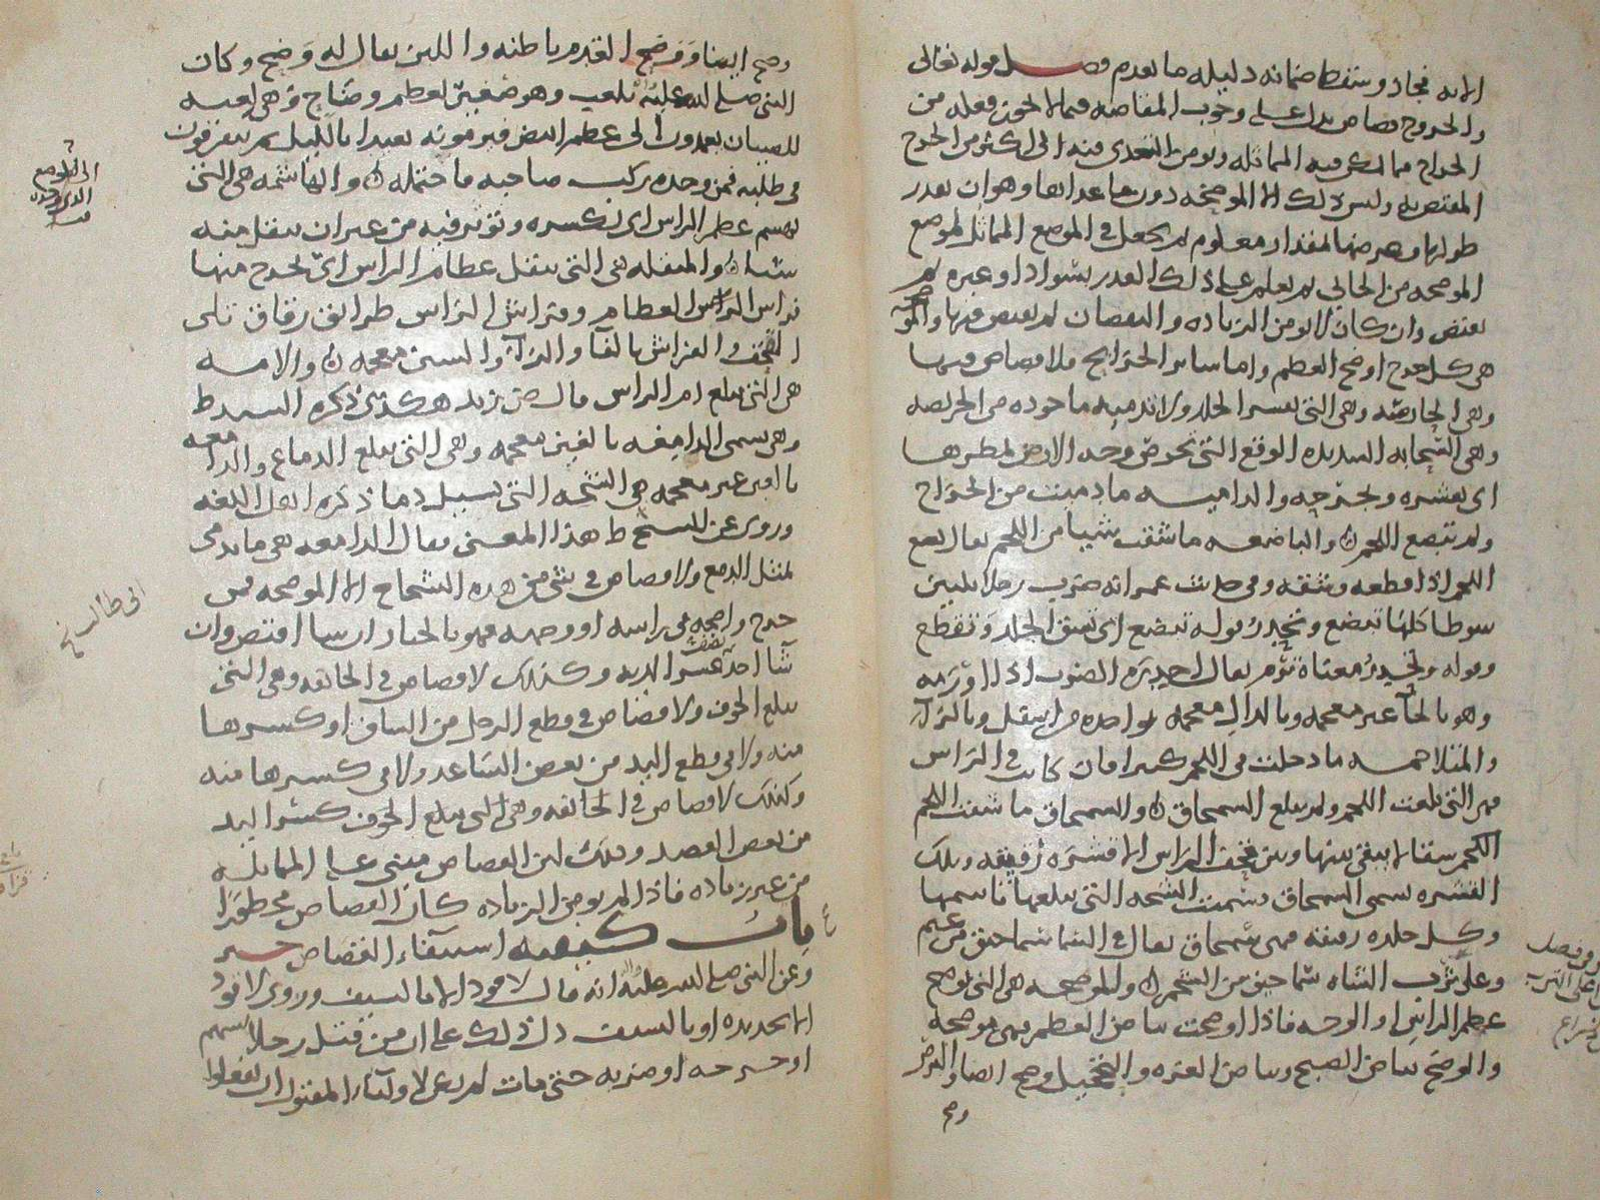 الا به فجاز وسقط ضمانه دليله ما تقدم فصل قوله تعالى
والجروح قصاص يدل على وجوب المقاصه فيما لا يخرج فعله من
الجراح مما يمكن فيه المماثله ويومن التعدى فيه الى اكثر من الجرح
المقتص به وليس ذلك الا الموضحه دون ما عداها وهو ان يقدر
طولها وعرضها لمقدار معلوم ثم يجعل فى الموضع المماثل لموضع
الموضحه من الجانى ثم يعلم على ذلك القدر بسواد او غيره ثم
يقتص وان كان لا يومن الزياده والنقصان لم يقتص فيها والموضحه
هى كل جرح اوضح العظم واما سائر الجرايح فلا قصاص فيها
وهى الحارصه وهى التى تقشر الجلد ولا تدميه ماخوذه من الحريصه
وهى السحابه الشديده الوقع التى تحرص وجه الارض بمطرها
اى تقشره وتجرحه والداميه ما دميت من الجراح
ولم تبضع اللحم والباضعه ما شقت شيا من اللحم يقال بضع
اللحم اذا قطعه وشقه وفى حديث عمر انه ضرب رجلا ثلثين
سوطا كلها تبضع وتحدر قوله تبضع اى تشق الجلد وتقطع
وقوله وتحدر معناه تورم يقال احدره الضرب اذا اورمه
وهو بالحا غير معجمه وبالدال معجمه بواحده من اسفل وبالرآ
والمتلاحمه ما دخلت فى اللحم كثيرا فان كانت فى الراس
فهى التى بلغت اللحم ولم تبلغ السمحاق والسمحاق ما شقت اللحم
اللحم شقا لا يبقى بينها وبين قحف الراس الا قشره رقيقه وتلك
القشره تسمى السمحاق وسميت الشجه التى تبلغها باسمها
وكل جلده رقيقه فهى سمحاق يقال فى السما سماحيق من غيم
وعلى ثرب الشاه سماحيق من الشحم والموضحه هى التى توضح
عظم الراس او الوجه فاذا اوضحت بياض العظم فهى موضحه
والوضح بياض الصبح وبياض الغره والتحجيل وضح ايضا والبرص
وضح
وضح ايضا ووضح القدم باطنه واللبن يقال له وضح وكان
النبى صلى الله عليه يلعب وهو صغير بعظم وضاح وهى لعبه
للصبيان يعمدون الى عظم ابيض فيرمونه بعيدا بالليل ثم يتفرقون
فى طلبه فمن وجده يركب صاحبه ما حتمله والهاشمه هى التى
تهشم عظم الراس اى تكسره وتوثر فيه من غير ان ينقل منه
شيا والمنقله هى التى تنقل عظام الراس اى تخرج منها
فراش الراس العظام وفراش الراس طرائق رقاق تلى
القحف والفراش بالفا والرآ والشين معجمه والامه
هى التى تبلغ ام الراس قال زيد هكذى ذكره السيد ط
وهى تسمى الدامغه بالغين معجمه وهى التى تبلغ الدماغ والدامعه
بالعين غير معجمه هى الشجه التى تسيل دما ذكره اهل اللغه
وروى عن الشيخ ط هذا المعنى فقال الدامعه هى ما يدمى
لمثل الدمع ولا قصاص فى شى من هذه الشجاج الا الموضحه فمن
جرح واضحه فى راسه او وجهه فهو بالخيار ان شا اقتص وان
شآ اخذ نصف عشر الديه وكذلك لا قصاص فى الجائفه وهى التى
تبلغ الجوف ولا قصاص فى قطع الرجل من الساق او كسرها
منه ولا فى قطع اليد من بعض الساعد ولا فى كسرها منه
وكذلك لا قصاص فى الجائفه وهى التى تبلغ الجوف كسر اليد
من بعض العضد وذلك لان القصاص مبنى على المماثله
من غير زياده فاذا لم يومن الزياده كان القصاص محظورا
باب كيفيه استيفاء القصاص خبر
وعن النبى صلى الله عليه انه قال لا قود الا بالسيف وروى لا قود
الا بحديده او بالسيف دل ذلك على ان من قتل رجلا بسهم
او جرحه او ضربه حتى مات لم يكن لاوليآء المقتول ان يفعلوا
الى الموضع
الذى